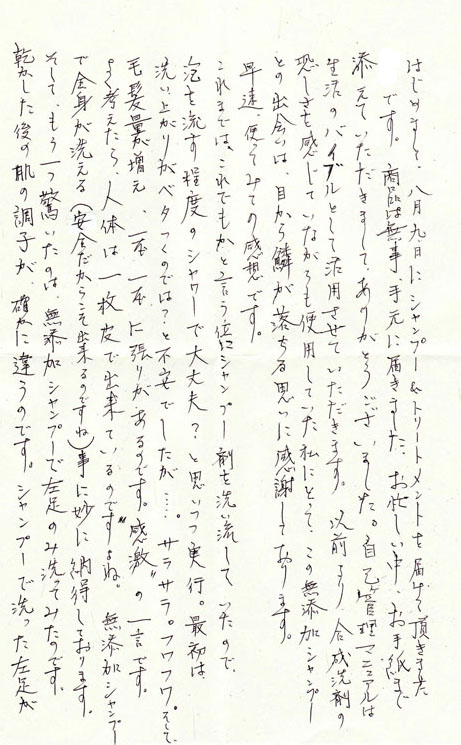 はじめまして、八月九日にシャンプー&トリートメントを届けて頂きました
です。商品は無事、手元に届きました。お忙しい中、お手紙まで
添えていただきまして、ありがとうございました。自己管理マニュアルは
生活のバイブルとして活用させていただきます。以前より、合成洗剤の
恐しさを感じていながらも使用していた私にとって、この無添加シャンプー
との出会いは、目から鱗が落ちる思いに感謝しております。
早速、使ってみての感想です。
これまでは、これでもかと言う位にシャンプー剤を洗い流していたので、
泡を流す程度のシャワーで大丈夫?と思いつつ実行。最初は
洗い上がりがベタつくのでは?と不安でしたが……。サラサラ。フワフワ。そして、
毛髪量が増え、一本一本に張りがあるのです。“感激”の一言です。
よく考えたら、人体は一枚皮で出来ているのですよね。無添加シャンプー
で全身が洗える(安全だからこそ出来るのですね)事に妙に納得しております。
そして、もう一つ驚いたのは無添加シャンプーで左足のみ洗ってみたのです。
乾かした後の肌の調子が、確かに違うのです。シャンプーで洗った左足が